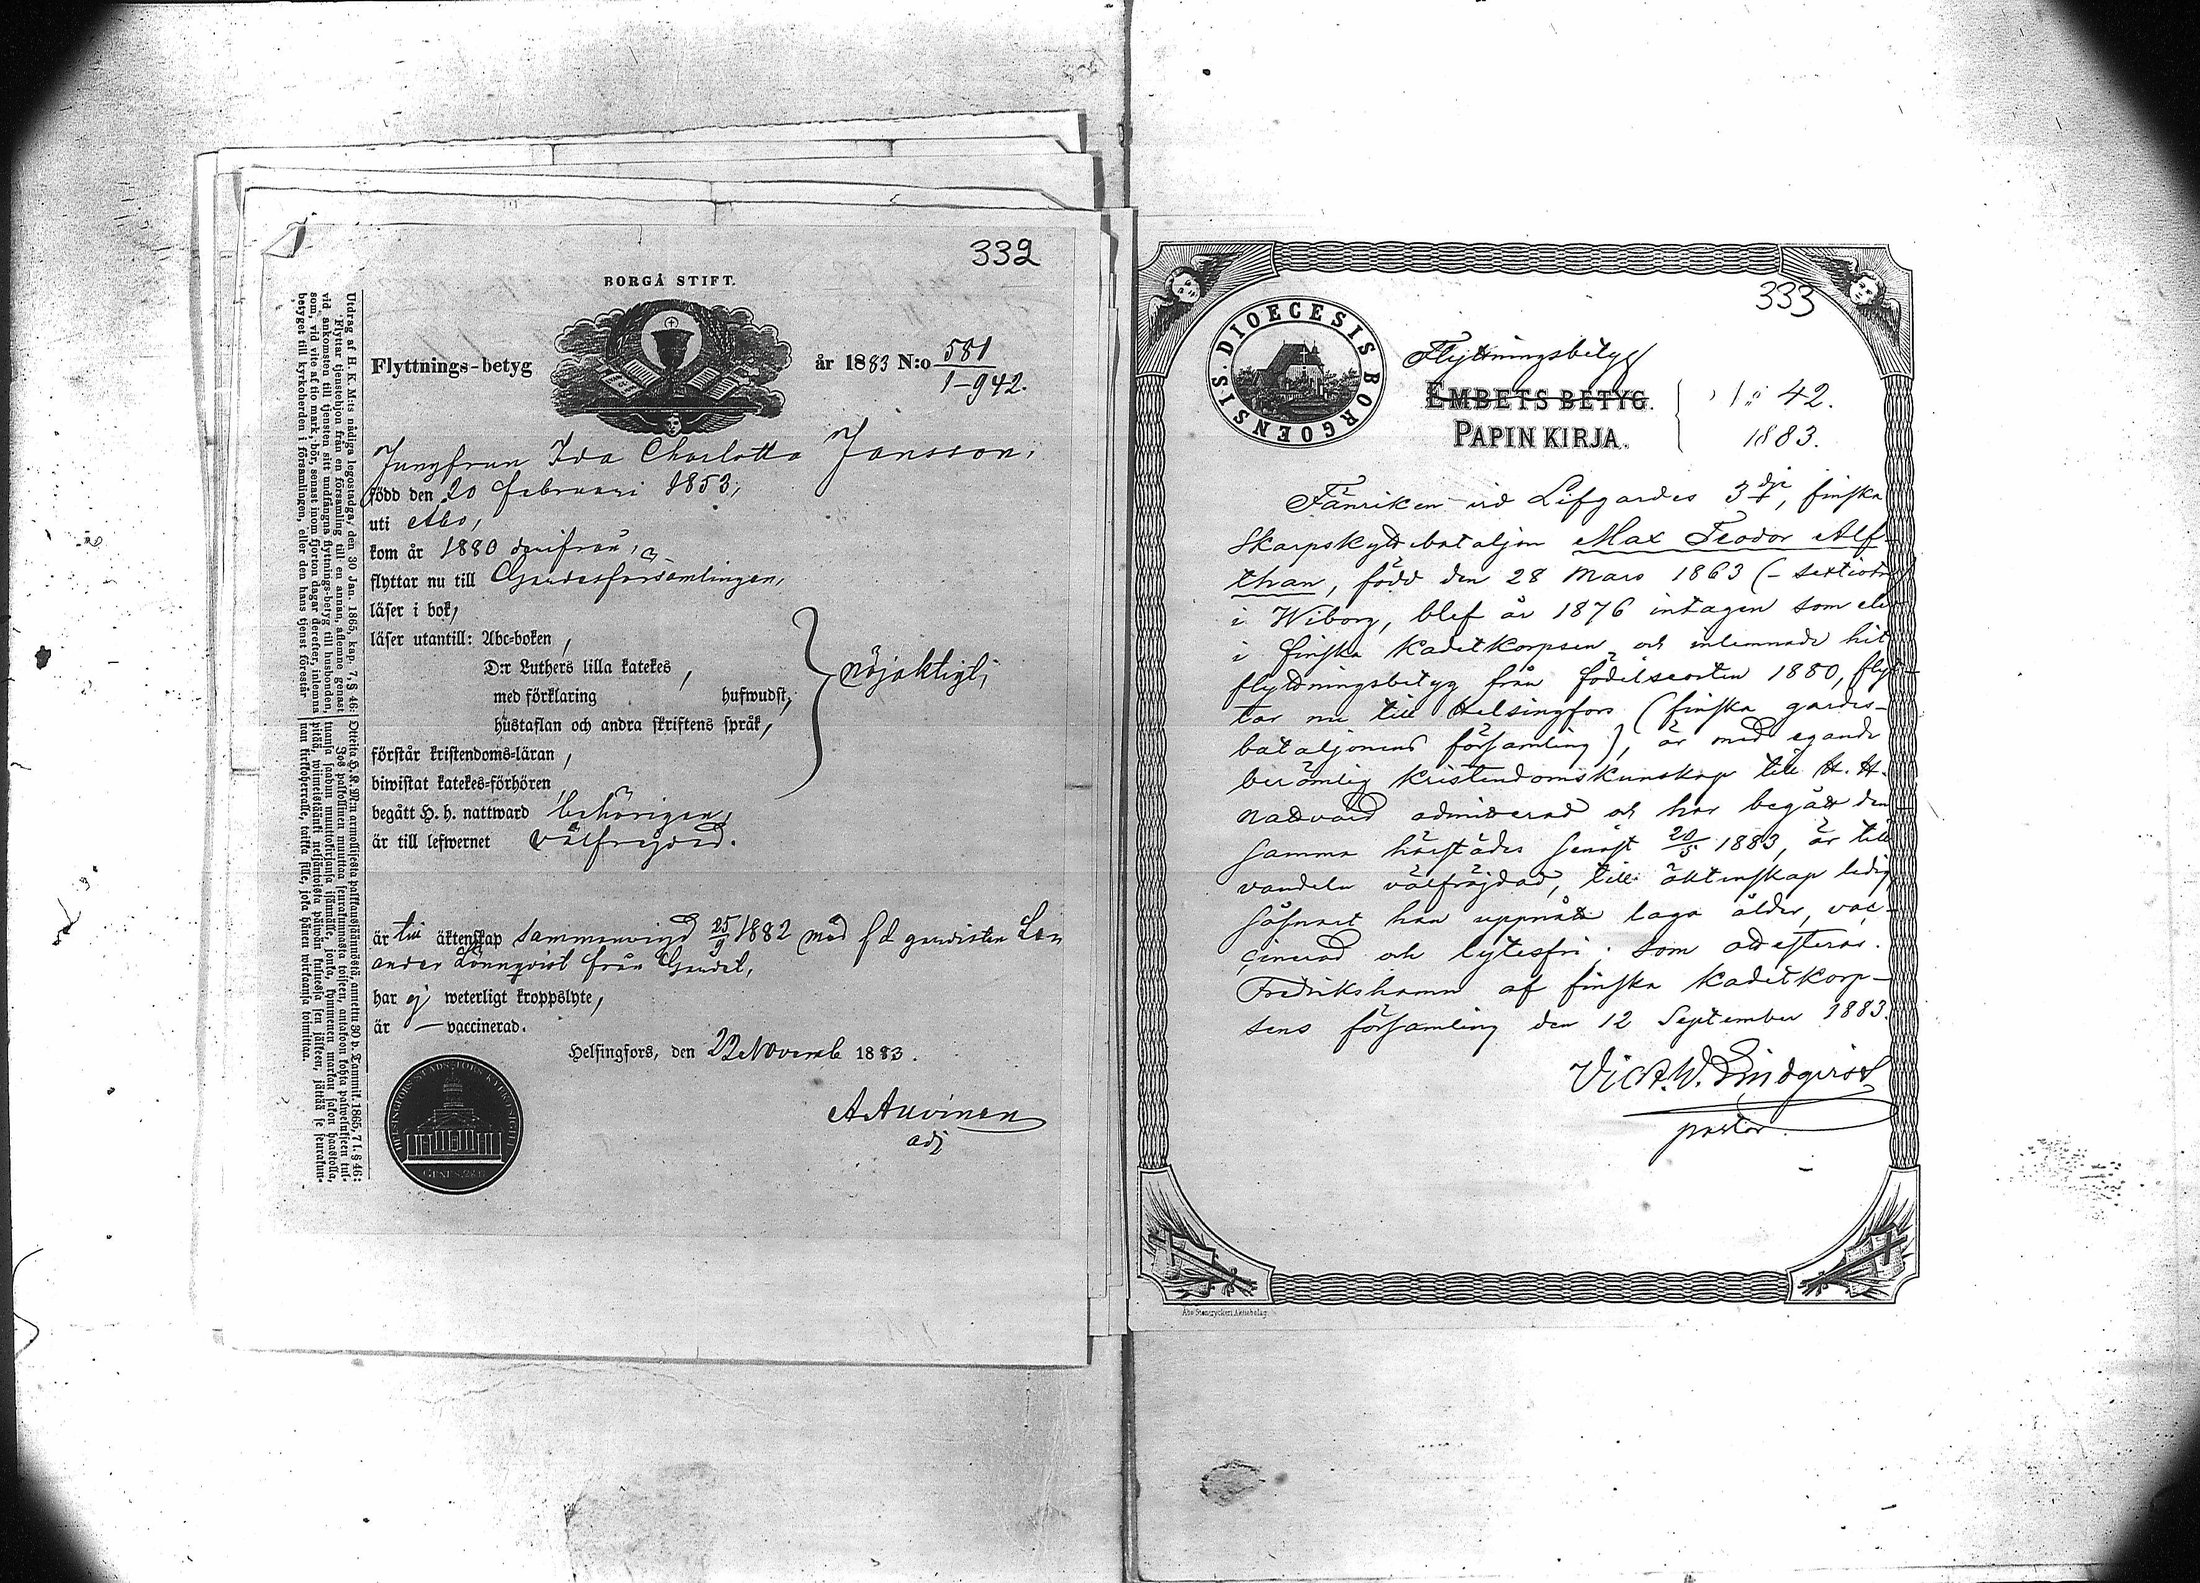 332
BORGÅ STIFT.
Flyttnings-betyg år 1883 N:o 581
1-942.
Jungfrun Ida Charlotta Jansson,
född den 20 februari 1853,
uti Åbo,
kom år 1880 därifrån,
flyttar nu till Gardesförsamlingen,
läser i bok,
läser utantill: Abc-boken,
D:r Luthers lilla katekes,
med förklaring hufwudst,
hustaflan och andra skriftens språk,
nöjaktigt,
förstår kristendoms-läran,
biwistat katekes-förhören
begått H. h. nattward behörigen,
är till lefwernet välfrejdad.
är till äktenskap sammanvigd 25/9 1882 med f d gardisten
Lönnqvist från Gardet,
har ej weterligt kroppslyte,
är — vaccinerad.
Helsingfors, den 22 Novemb 1883.
A Auvinen
adj
Utdrag af H. K. M:ts nådiga legostadga, den 30 Jan. 1865, kap. 7, § 46:
Flyttar tjenstehjon från en församling till en annan, aflemne genast
vid ankomsten till tjensten sitt undfångna flyttnings-betyg till husbonden,
som, vid vite af tio mark, bör, senast inom fjorton dagar derefter, inlemna
betyget till kyrkoherden i församlingen, eller den hans tjenst förestår
Otteita H. K. M:n armollisesta palkkaussäännöstä, annettu 30 p. Tammik. 1865, 7 l. § 46:
Jos palkollinen muuttaa seurakunnasta toiseen, antakoon kohta palwelukseen tul-
tuansa saadun muuttokirjansa isännälle, jonka, kymmenen markan sakon haastolla,
pitää, wiimeistäänki neljäntoista päiwän kuluessa sen jälkeen, jättää se seurakun-
nan kirkkoherralle, taikka sille, joka hänen wirkaansa toimittaa.
HELSINGFORS STADS
333
S:IS. DIOECESIS BORGOENSIS
Flyttningsbetyg
EMBETS BETYG.
PAPIN KIRJA.
42.
1883.
Fänriken vid Lifgardes 3dje, finska
Skarpskyttebataljon Max Feodor Alf-
than, född den 28 Mars 1863
i Wiborg, blef år 1876 intagen som elev
i finska Kadetkorpsen och inlemnade hit
flyttningsbetyg från födelseorten 1880, flyt-
tar nu till Helsingfors (finska gardes-
bataljonens församling), är med egande
berömlig kristendomskunskap till H. H.
Nattvard admitterad och har begått den-
samma härstädes senast 20/5 1883, är till
vandeln välfräjdad, till äktenskap ledig
såsnart han uppnått laga ålder, vac-
cinerad och lytesfri; som attesteras.
Fredrikshamn af finska Kadetkorp-
sens församling den 12 September 1883.
Vict. W. Lindqvist
pastor.
Åbo Stentryckeri Aktiebolag.